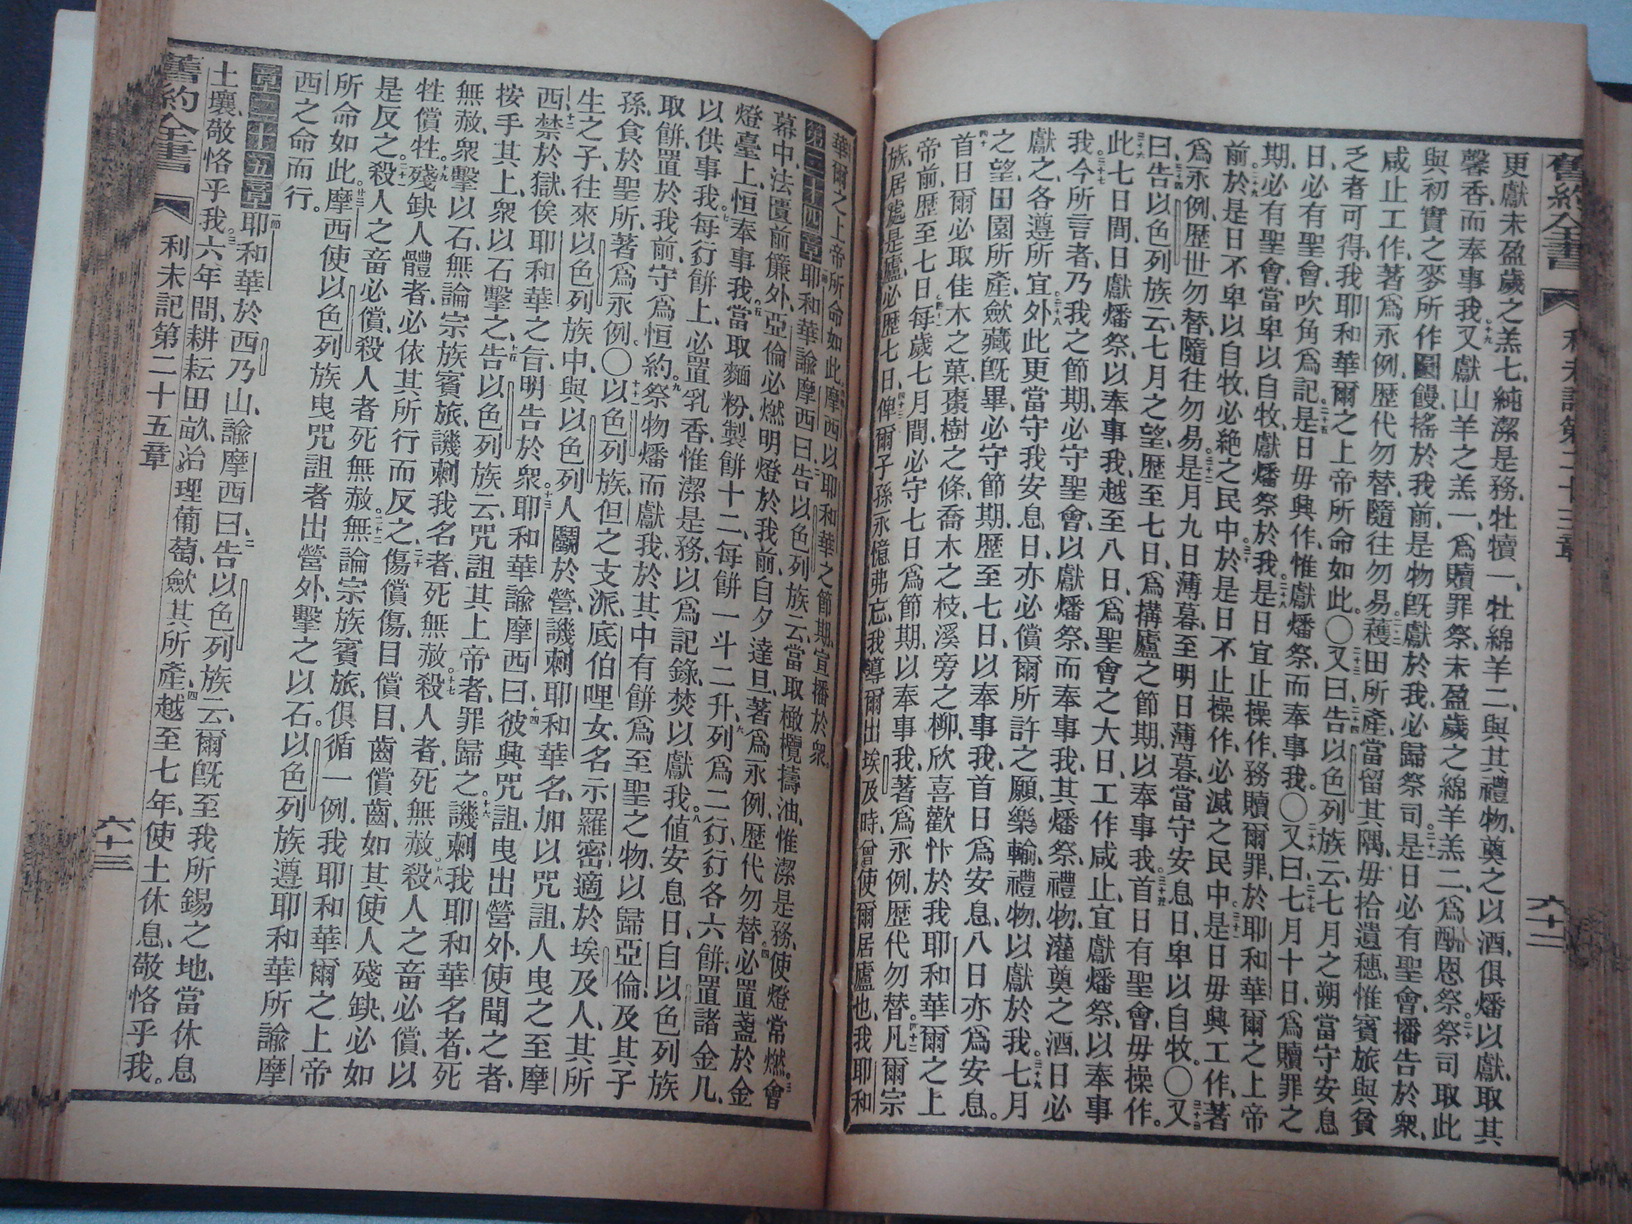 舊約全書
利未記第二十三章
六十二
更獻未盈歲之羔七、純潔是務、牡犢一、牡綿羊二、與其禮物、奠之以酒、俱燔以獻、取其
馨香、而奉事我、又獻山羊之羔一、爲贖罪祭、未盈歲之綿羊羔二、爲酬恩祭、祭司取此
與初實之麥所作圜饅、搖於我前、是物旣獻於我、必歸祭司、是日必有聖會、播告於衆、
咸止工作、著爲永例、歷代勿替、隨往勿易、穫田所產、當留其隅、毋拾遺穗、惟賓旅與貧
乏者可得、我耶和華爾之上帝所命如此。〇又曰、告以色列族云、七月之朔、當守安息
日、必有聖會、吹角爲記、是日毋興作、惟獻燔祭、而奉事我。〇又曰、七月十日、爲贖罪之
期、必有聖會、當卑以自牧、獻燔祭於我、是日宜止操作、務贖爾罪、於耶和華爾之上帝
前、於是日不卑以自牧、必絕之民中、於是日不止操作、必滅之民中、是日毋興工作、著
爲永例、歷世勿替、隨往勿易、是月九日薄暮、至明日薄暮、當守安息日、卑以自牧。〇又
曰、告以色列族云、七月之望、歷至七日、爲構廬之節期、以奉事我、首日有聖會、毋操作。
此七日間、日獻燔祭、以奉事我、越至八日、爲聖會之大日、工作咸止、宜獻燔祭、以奉事
我、今所言者、乃我之節期、必守聖會、以獻燔祭、而奉事我、其燔祭、禮物、灌奠之酒、日必
獻之、各遵所宜、外此更當守我安息日、亦必償爾所許之願、樂輸禮物、以獻於我、七月
之望、田園所產、斂藏旣畢、必守節期、歷至七日、以奉事我、首日爲安息、八日亦爲安息。
首日爾必取佳木之菓、棗樹之條、喬木之枝、溪旁之柳、欣喜歡忭於我耶和華爾之上
帝前、歷至七日、每歲七月間、必守七日爲節期、以奉事我、著爲永例、歷代勿替、凡爾宗
族、居處是廬、必歷七日、俾爾子孫永憶弗忘、我導爾出埃及時、曾使爾居廬也、我耶和
華爾之上帝所命如此、摩西以耶和華之節期、宣播於衆。
第二十四章 耶和華諭摩西曰、告以色列族云、當取橄欖擣油、惟潔是務、使燈常燃、會
幕中、法匱前簾外、亞倫必燃明燈於我前、自夕達旦、著爲永例、歷代勿替、必置盞於金
燈臺上、恒奉事我、當取麵粉、製餅十二、每餅一斗二升、列爲二行、行各六餅、置諸金几、
以供事我、每行餅上、必置乳香、惟潔是務、以爲記錄、焚以獻我、値安息日、自以色列族
取餅、置於我前、守爲恒約、祭物燔而獻我、於其中有餅爲至聖之物、以歸亞倫、及其子
孫、食於聖所、著爲永例。〇以色列族、但之支派、底伯哩女、名示羅密、適於埃及人、其所
生之子、往來以色列族中、與以色列人鬭於營、譏刺耶和華名、加以咒詛、人曳之至摩
西、禁於獄、俟耶和華之旨、明告於衆、耶和華諭摩西曰、彼興咒詛、曳出營外、使聞之者、
按手其上、衆以石擊之、告以色列族云、咒詛其上帝者、罪歸之、譏刺我耶和華名者、死
無赦、衆擊以石、無論宗族賓旅、譏刺我名者、死無赦、殺人者、死無赦、殺人之畜必償、以
牲償牲、殘缺人體者、必依其所行而反之、傷償傷、目償目、齒償齒、如其使人殘缺、必如
是反之、殺人之畜必償、殺人者死無赦、無論宗族賓旅、俱循一例、我耶和華爾之上帝
所命如此、摩西使以色列族曳咒詛者出營外、擊之以石。以色列族遵耶和華所諭摩
西之命而行。
第二十五章 耶和華於西乃山、諭摩西曰、告以色列族云、爾旣至我所錫之地、當休息
土壤、敬恪乎我、六年間、耕耘田畝、治理葡萄、斂其所產、越至七年、使土休息、敬恪乎我。
舊約全書
利未記第二十五章
六十三